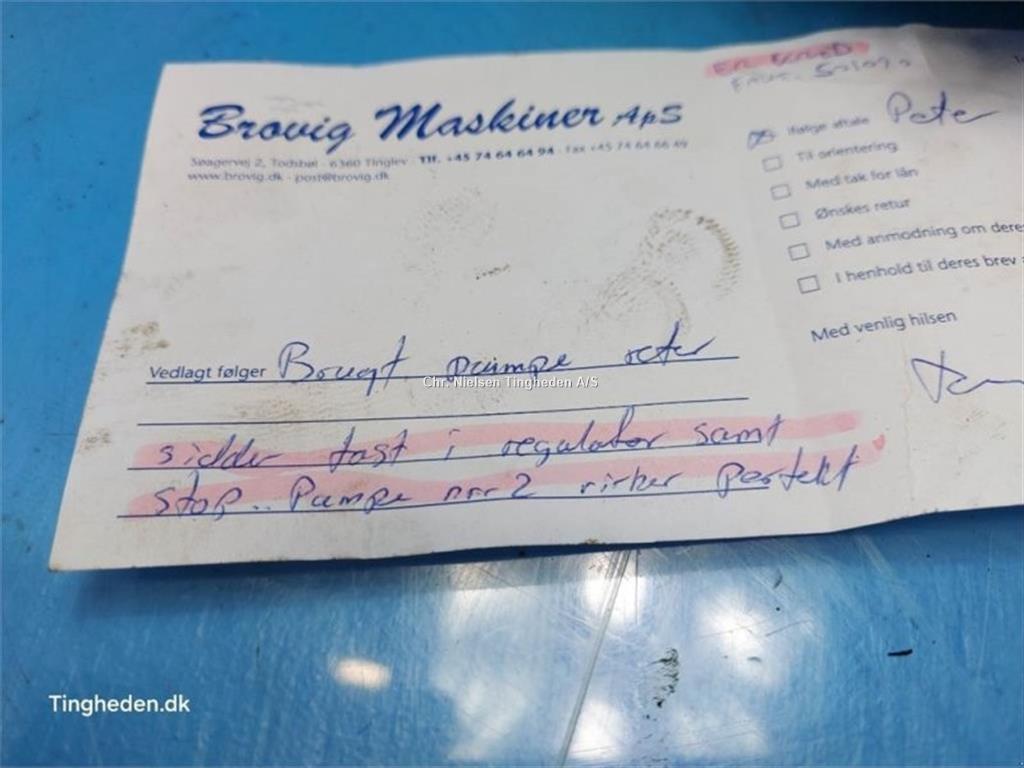 Brovig Maskiner ApS
Søagervej 2, Todsbøl · 6360 Tinglev · Tlf. +45 74 64 64 94 · Fax +45 74 64 66 49
www.brovig.dk · post@brovig.dk
Ifølge aftale Peter
Til orientering
Med tak for lån
Ønskes retur
Med anmodning om deres
I henhold til deres brev a
Med venlig hilsen
Vedlagt følger Brugt pumpe retur
Chr. Nielsen Tingheden A/S
sidder fast i regulator samt
stop.. Pumpe nr 2 virker perfekt
Tingheden.dk